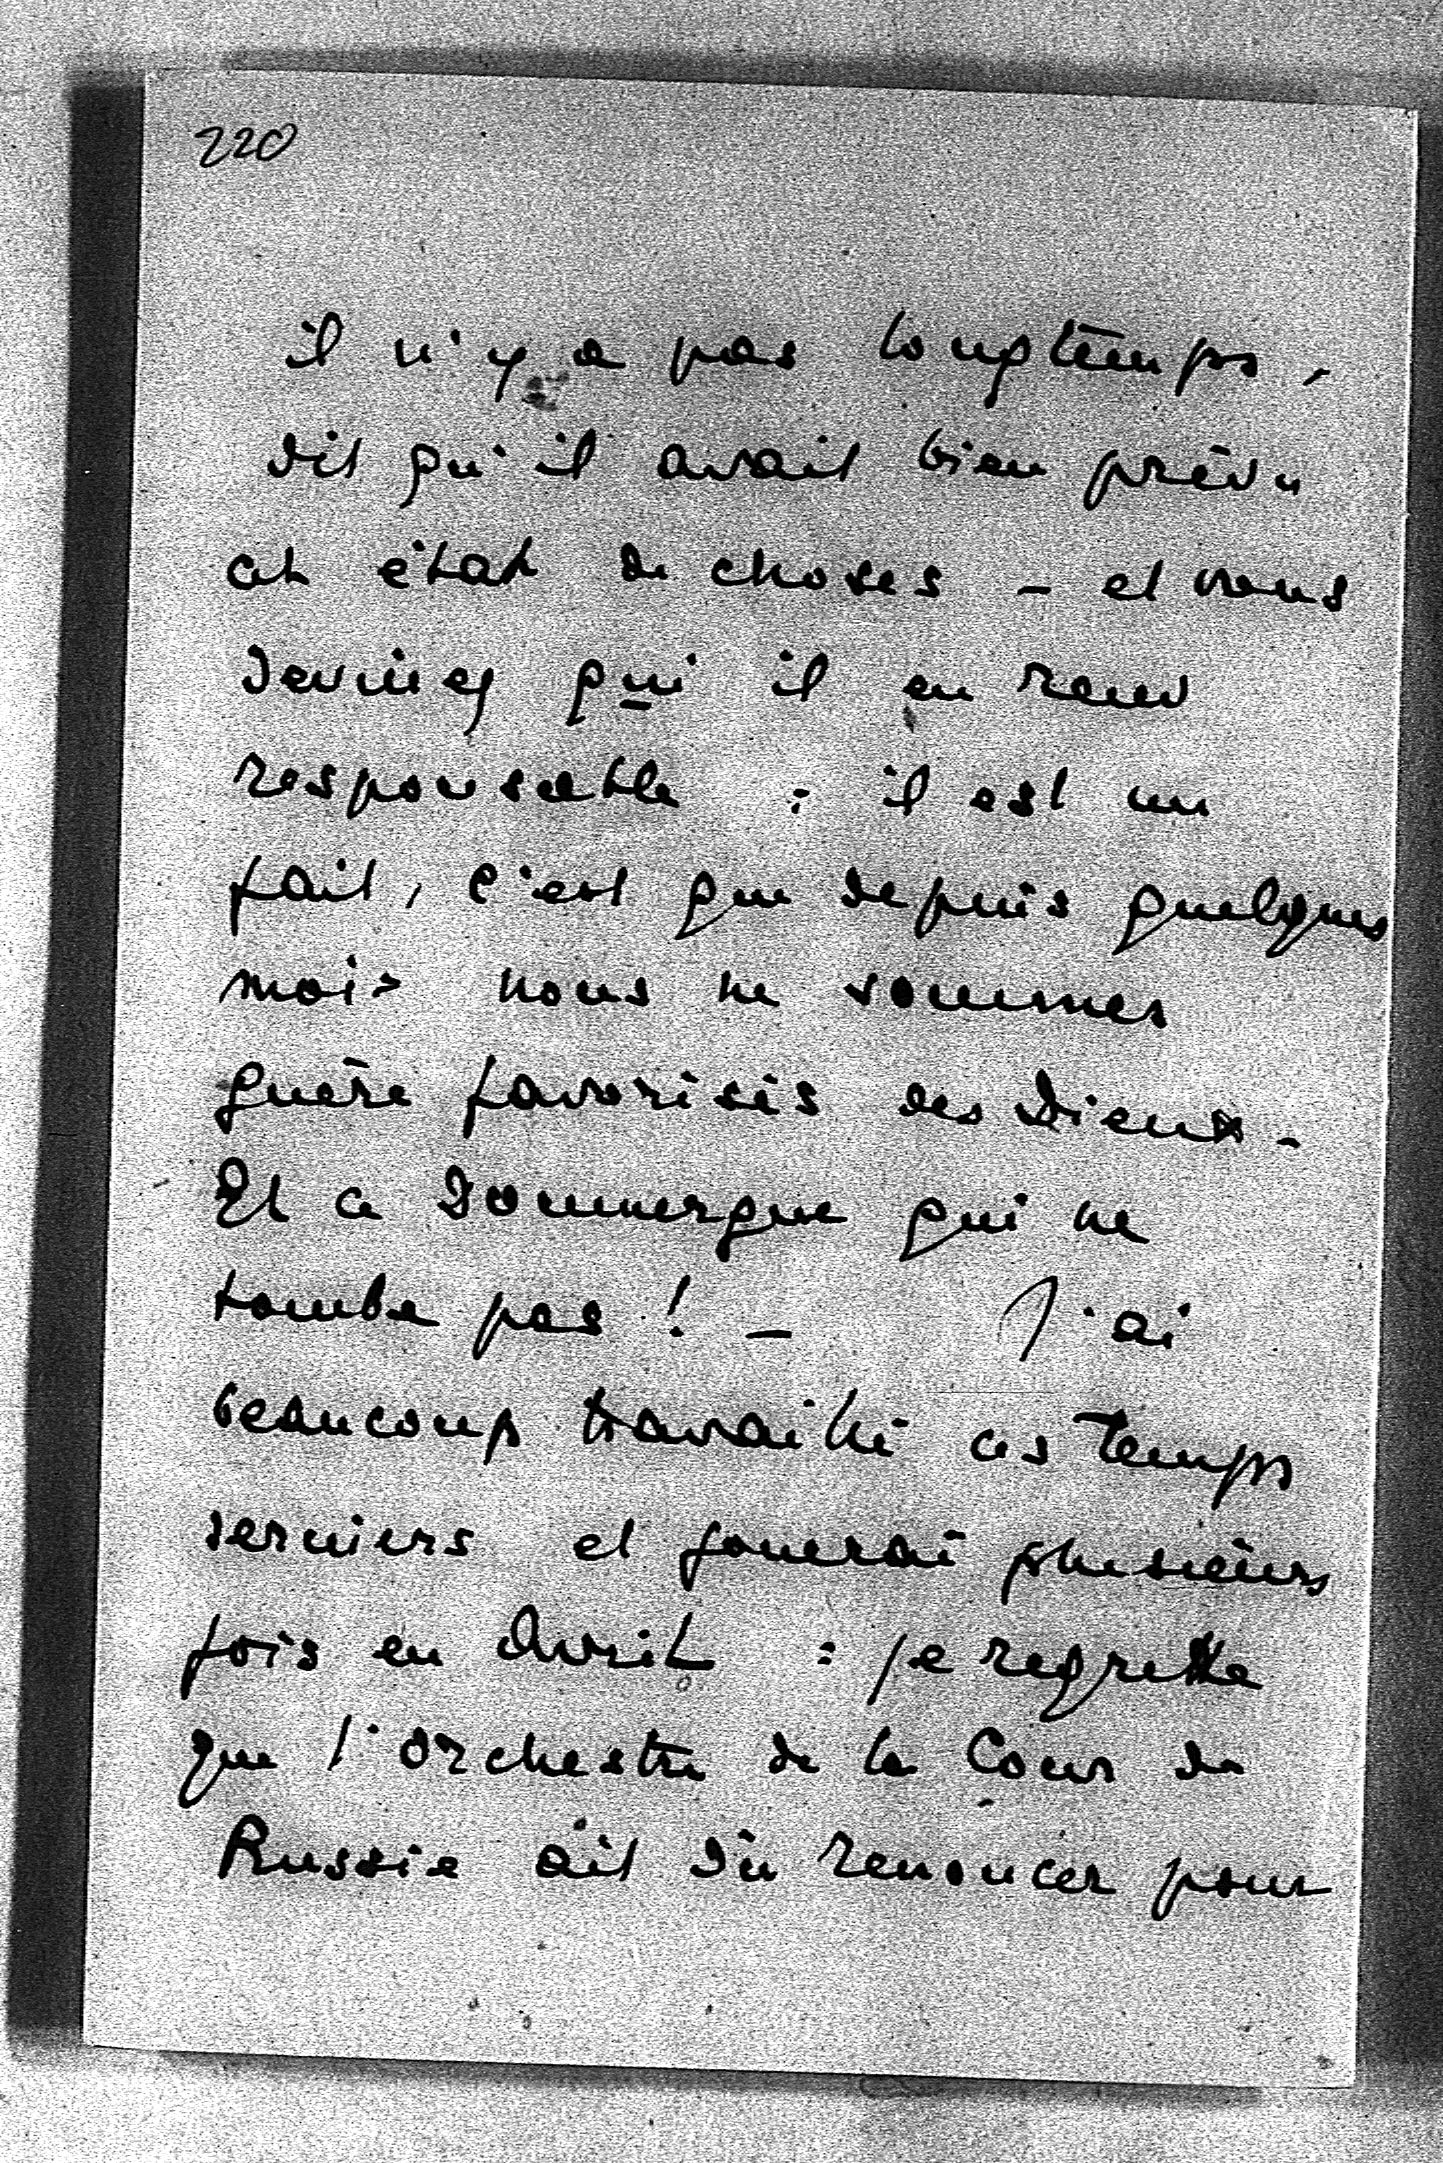 220
il n'y a pas longtemps,
dit qu'il avait bien prévu
cet état de choses - et vous
devinez qui il en rend
responsable : il est un
fait, c'est que depuis quelques
mois nous ne sommes
guère favorisés des Dieux -
Et ce Doumergue qui ne
tombe pas ! - J'ai
beaucoup travaillé ces temps
derniers et jouerai plusieurs
fois en Avril : je regrette
que l'orchestre de la Cour de
Russie ait dû renoncer pour